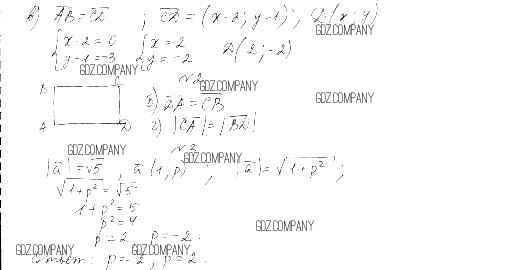 в) AB = CD ; CD = (x-2; y-1); D(x; y)
GDZ.COMPANY
{x-2=0 {x=2 D(2; -2)
{y-1=-3 {y=-2
GDZ.COMPANY
№2
GDZ.COMPANY
B C
GDZ.COMPANY
б) DA = CB
A D
г) |CA| = |BD|
№2
GDZ.COMPANY
GDZ.COMPANY
|a| = √5, a(1, p); |a| = √1+p²;
√1+p² = √5
1+p² = 5
p² = 4
GDZ.COMPANY
p = 2 p = -2.
GDZ.COMPANY
GDZ.COMPANY
Ответ: p = -2, p = 2.